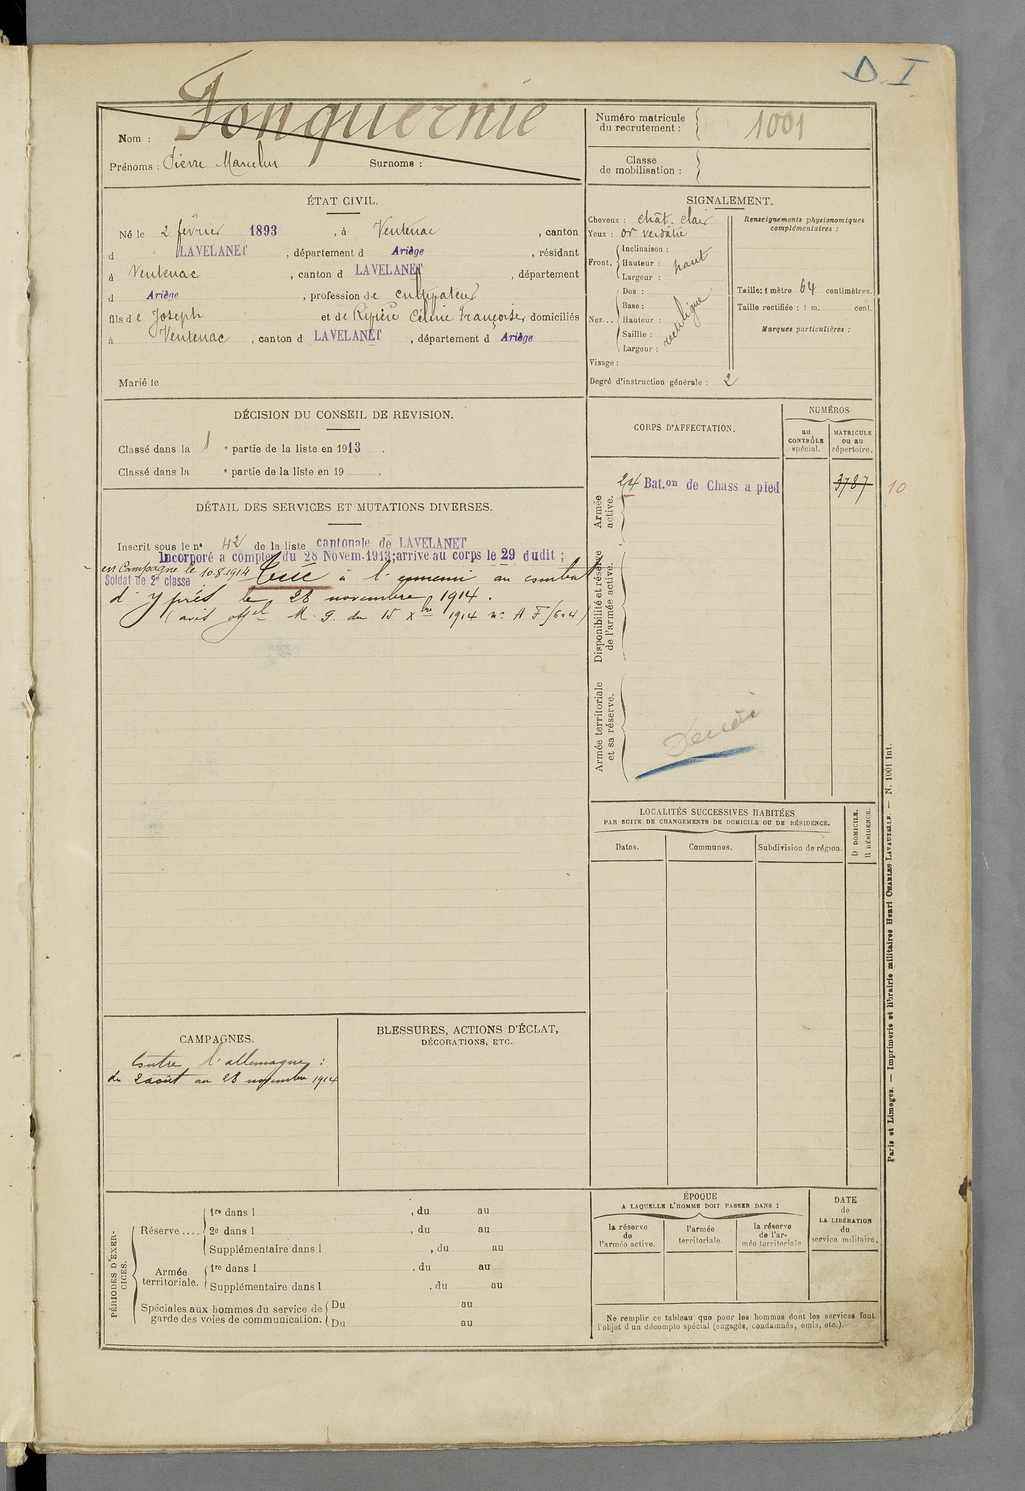 D. I
Fonquernie
Nom :
Prénoms : Pierre Marcelin Surnoms :
Numéro matricule
du recrutement : 1001
Classe
de mobilisation :
ÉTAT CIVIL.
Né le 2 février 1893, à Ventenac, canton
d LAVELANET, département d Ariège, résidant
à Ventenac, canton d LAVELANET, département
d Ariège, profession de cultivateur
fils de Joseph et de Ripière Céline Françoise, domiciliés
à Ventenac, canton d LAVELANET, département d Ariège
Marié le
SIGNALEMENT.
Cheveux : chât. clair
Yeux : or verdâtre
Front. Inclinaison :
Hauteur : haut
Largeur :
Nez... Dos : rectiligne
Base :
Hauteur :
Saillie :
Largeur :
Visage :
Degré d'instruction générale : 2
Renseignements physionomiques
complémentaires :
Taille : 1 mètre 64 centimètres.
Taille rectifiée : 1 m. cent.
Marques particulières :
DÉCISION DU CONSEIL DE REVISION.
Classé dans la 1 e partie de la liste en 1913.
Classé dans la e partie de la liste en 19 .
CORPS D'AFFECTATION.
NUMÉROS
au
CONTRÔLE
spécial.
MATRICULE
ou au
répertoire.
Armée
active.
24 Bat.on de Chass a pied 3787 10
Disponibilité et réserve
de l'armée active.
Armée territoriale
et sa réserve.
DÉTAIL DES SERVICES ET MUTATIONS DIVERSES.
Inscrit sous le no 42 de la liste cantonale de LAVELANET
Incorporé a compter du 28 Novem. 1913; arrivé au corps le 29 dudit ;
en Campagne le 10.8.1914
Soldat de 2e classe
Tué à l'ennemi au combat
d'Yprés le 28 novembre 1914.
(avis offel M. G. du 15 Xbre 1914 no A F/604)
LOCALITÉS SUCCESSIVES HABITÉES
PAR SUITE DE CHANGEMENTS DE DOMICILE OU DE RÉSIDENCE.
Dates. Communes. Subdivision de région.
D DOMICILE.
R RÉSIDENCE.
CAMPAGNES.
Contre l'allemagne :
du 2 août au 28 novembre 1914
BLESSURES, ACTIONS D'ÉCLAT,
DÉCORATIONS, ETC.
PÉRIODES D'EXER-
CICES.
Réserve.... 1re dans l , du au
2e dans l , du au
Supplémentaire dans l , du au
Armée
territoriale. 1re dans l , du au
Supplémentaire dans l , du au
Spéciales aux hommes du service de
garde des voies de communication. Du au
Du au
ÉPOQUE
A LAQUELLE L'HOMME DOIT PASSER DANS :
la réserve
de
l'armée active.
l'armée
territoriale.
la réserve
de l'ar-
mée territoriale
DATE
de
LA LIBÉRATION
du
service militaire.
Ne remplir ce tableau que pour les hommes dont les services font
l'objet d'un décompte spécial (engagés, condamnés, omis, etc.).
Paris et Limoges. — Imprimerie et librairie militaires Henri CHARLES-LAVAUZELLE. — N. 1001 int.